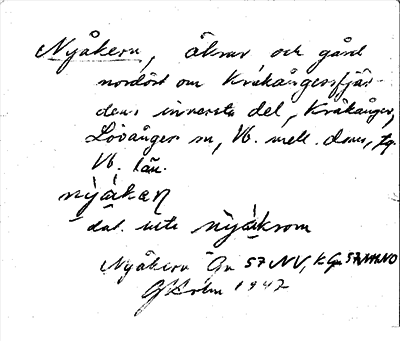 Nyåkern, åkrar och gård
nordöst om Kråkångersfjär-
dens innersta del, Kråkånger,
Lövånger sn, Vb. mell. doms, fg.
Vb. län.
nỳákaɳ
dat. inte nỳákrom
Nyåkern Gn 57 NV, k Gn
G Holm 1942